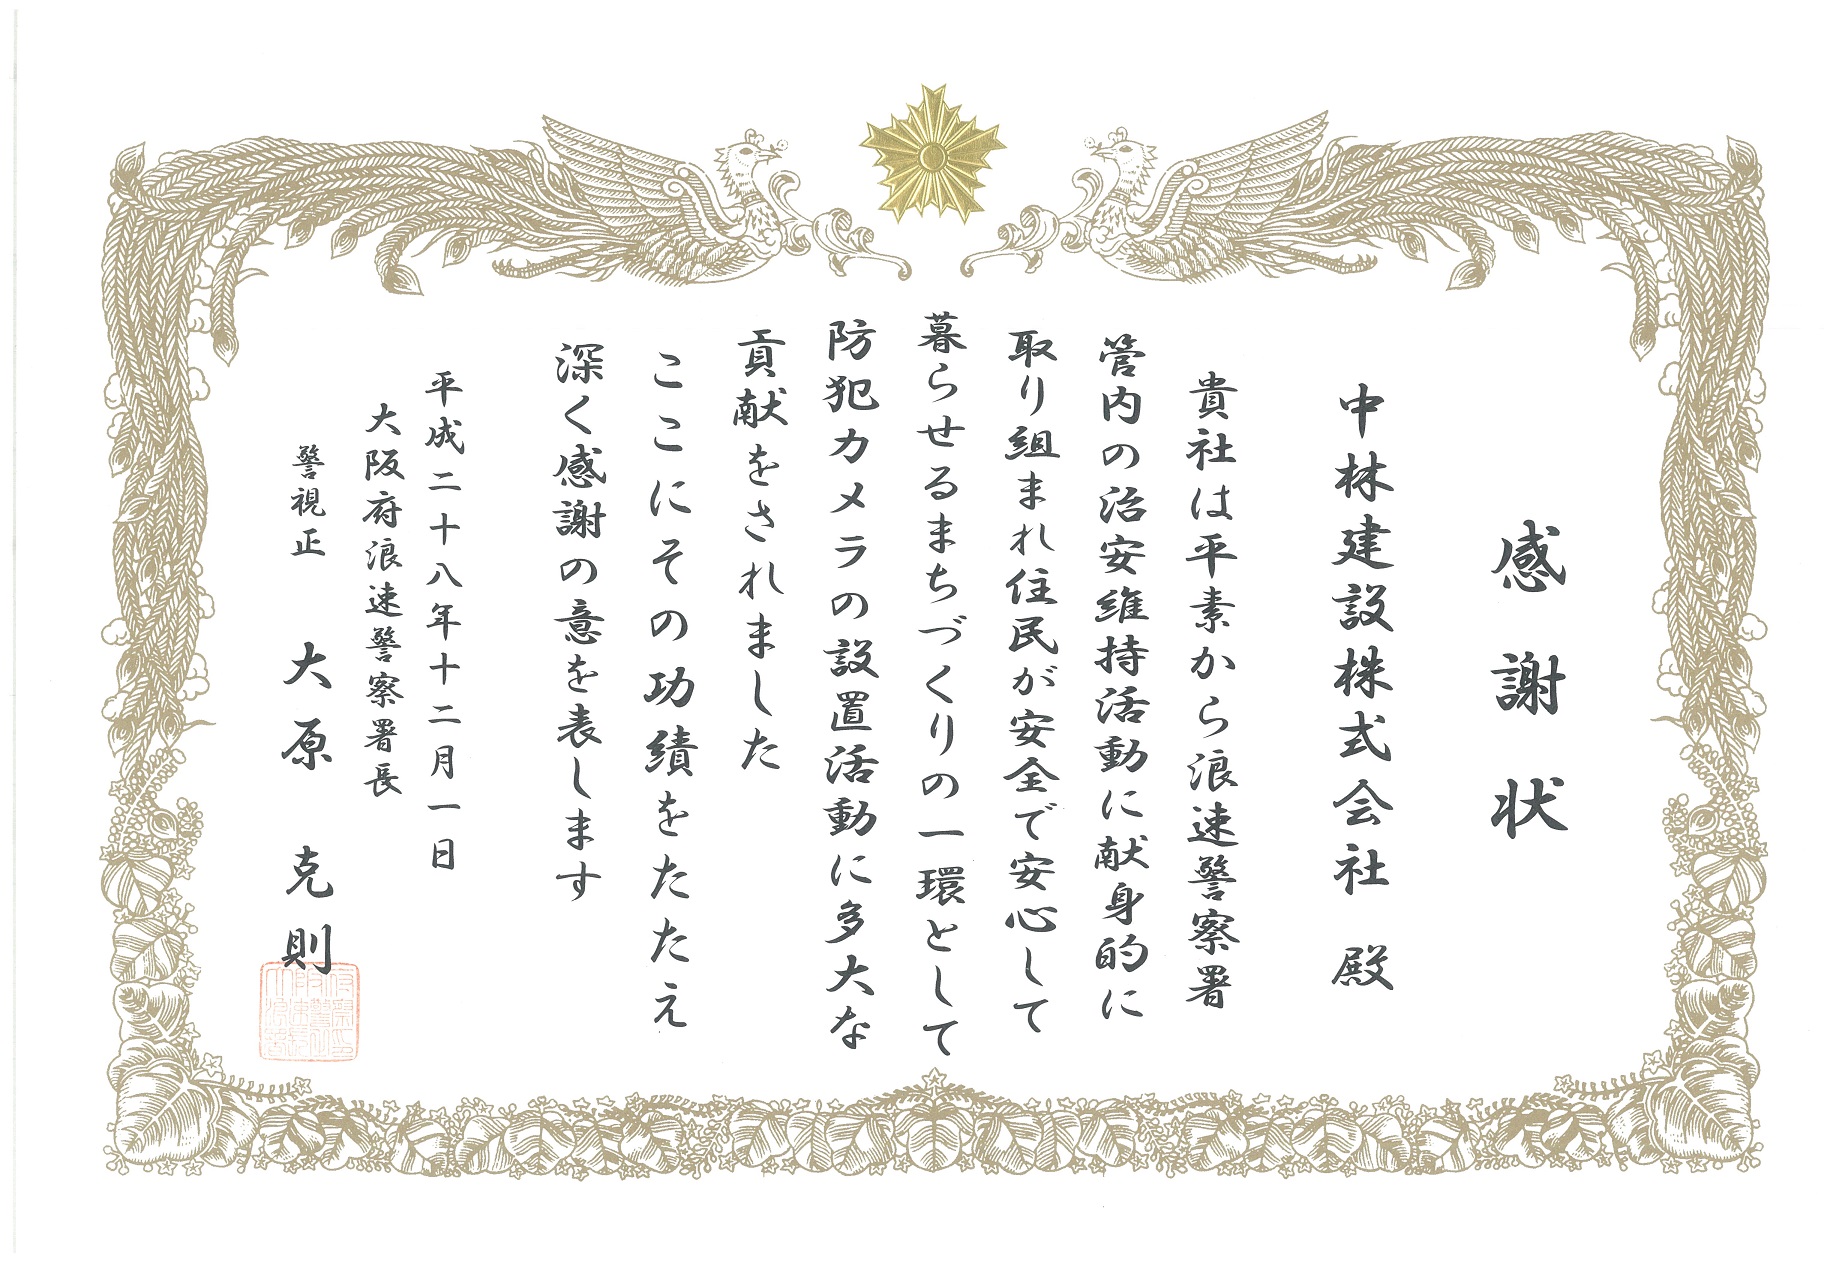 感謝状
中林建設株式会社 殿
貴社は平素から浪速警察署
管内の治安維持活動に献身的に
取り組まれ住民が安全で安心して
暮らせるまちづくりの一環として
防犯カメラの設置活動に多大な
貢献をされました
ここにその功績をたたえ
深く感謝の意を表します
平成二十八年十二月一日
大阪府浪速警察署長
警視正 大原 克則